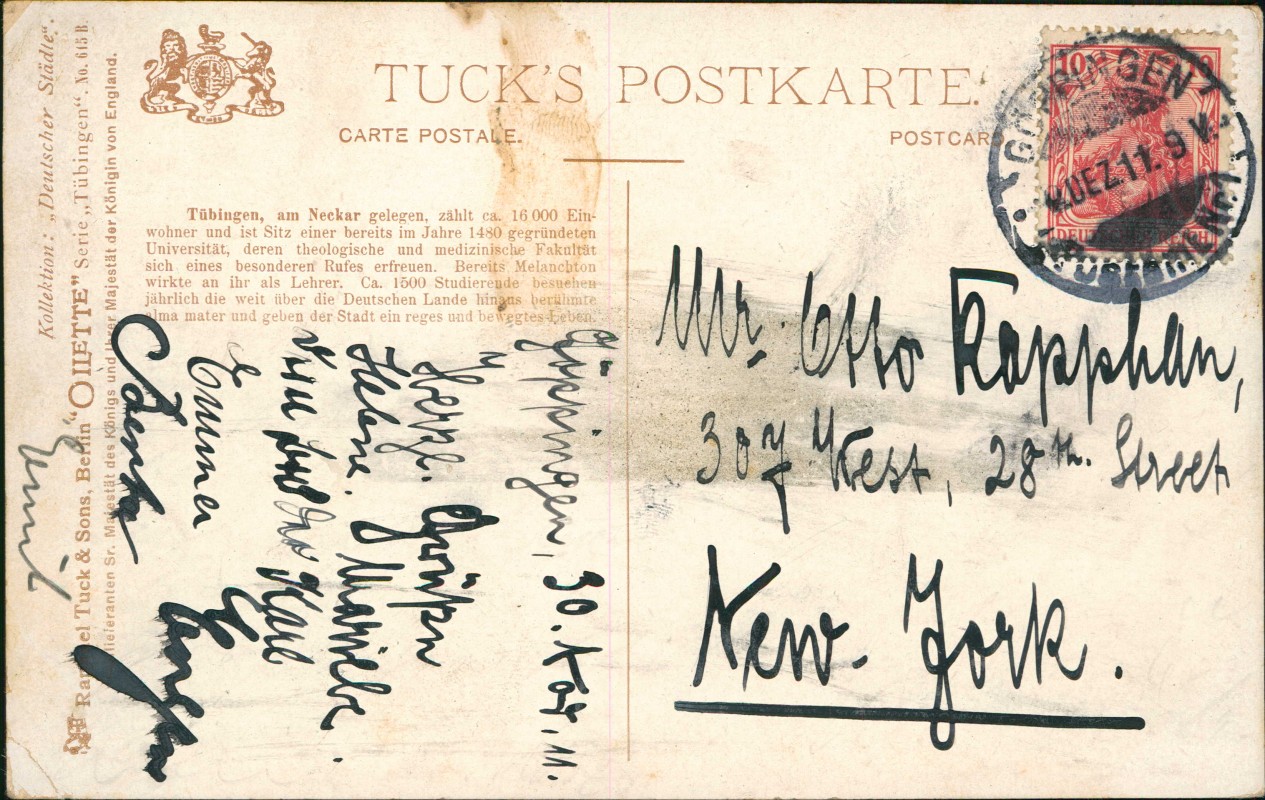 TUCK'S POSTKARTE.
CARTE POSTALE.
POSTCAR
Kollektion: „Deutscher Städte“.
Raphael Tuck & Sons, Berlin “OILETTE” Serie „Tübingen“. No. 615 B.
lieferanten Sr. Majestät des Königs und Ihrer Majestät der Königin von England.
Tübingen, am Neckar gelegen, zählt ca. 16 000 Ein-
wohner und ist Sitz einer bereits im Jahre 1480 gegründeten
Universität, deren theologische und medizinische Fakultät
sich eines besonderen Rufes erfreuen. Bereits Melanchton
wirkte an ihr als Lehrer. Ca. 1500 Studierende besuchen
jährlich die weit über die Deutschen Lande hinaus berühmte
alma mater und geben der Stadt ein reges und bewegtes Leben.
10 10
DEUTSCHES REICH
GÖPPINGEN
DEZ.11. 9 V.
Mr. Otto Kapphan,
307 West, 28th. Street
New-York.
Göppingen, 30. Nov. 11.
Herzl. Grüße
Helene. Mariele.
Karl
Emma